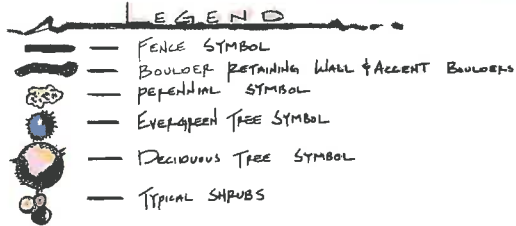 LEGEND
FENCE SYMBOL
BOULDER RETAINING WALL & ACCENT BOULDERS
PERENNIAL SYMBOL
EVERGREEN TREE SYMBOL
DECIDUOUS TREE SYMBOL
TYPICAL SHRUBS